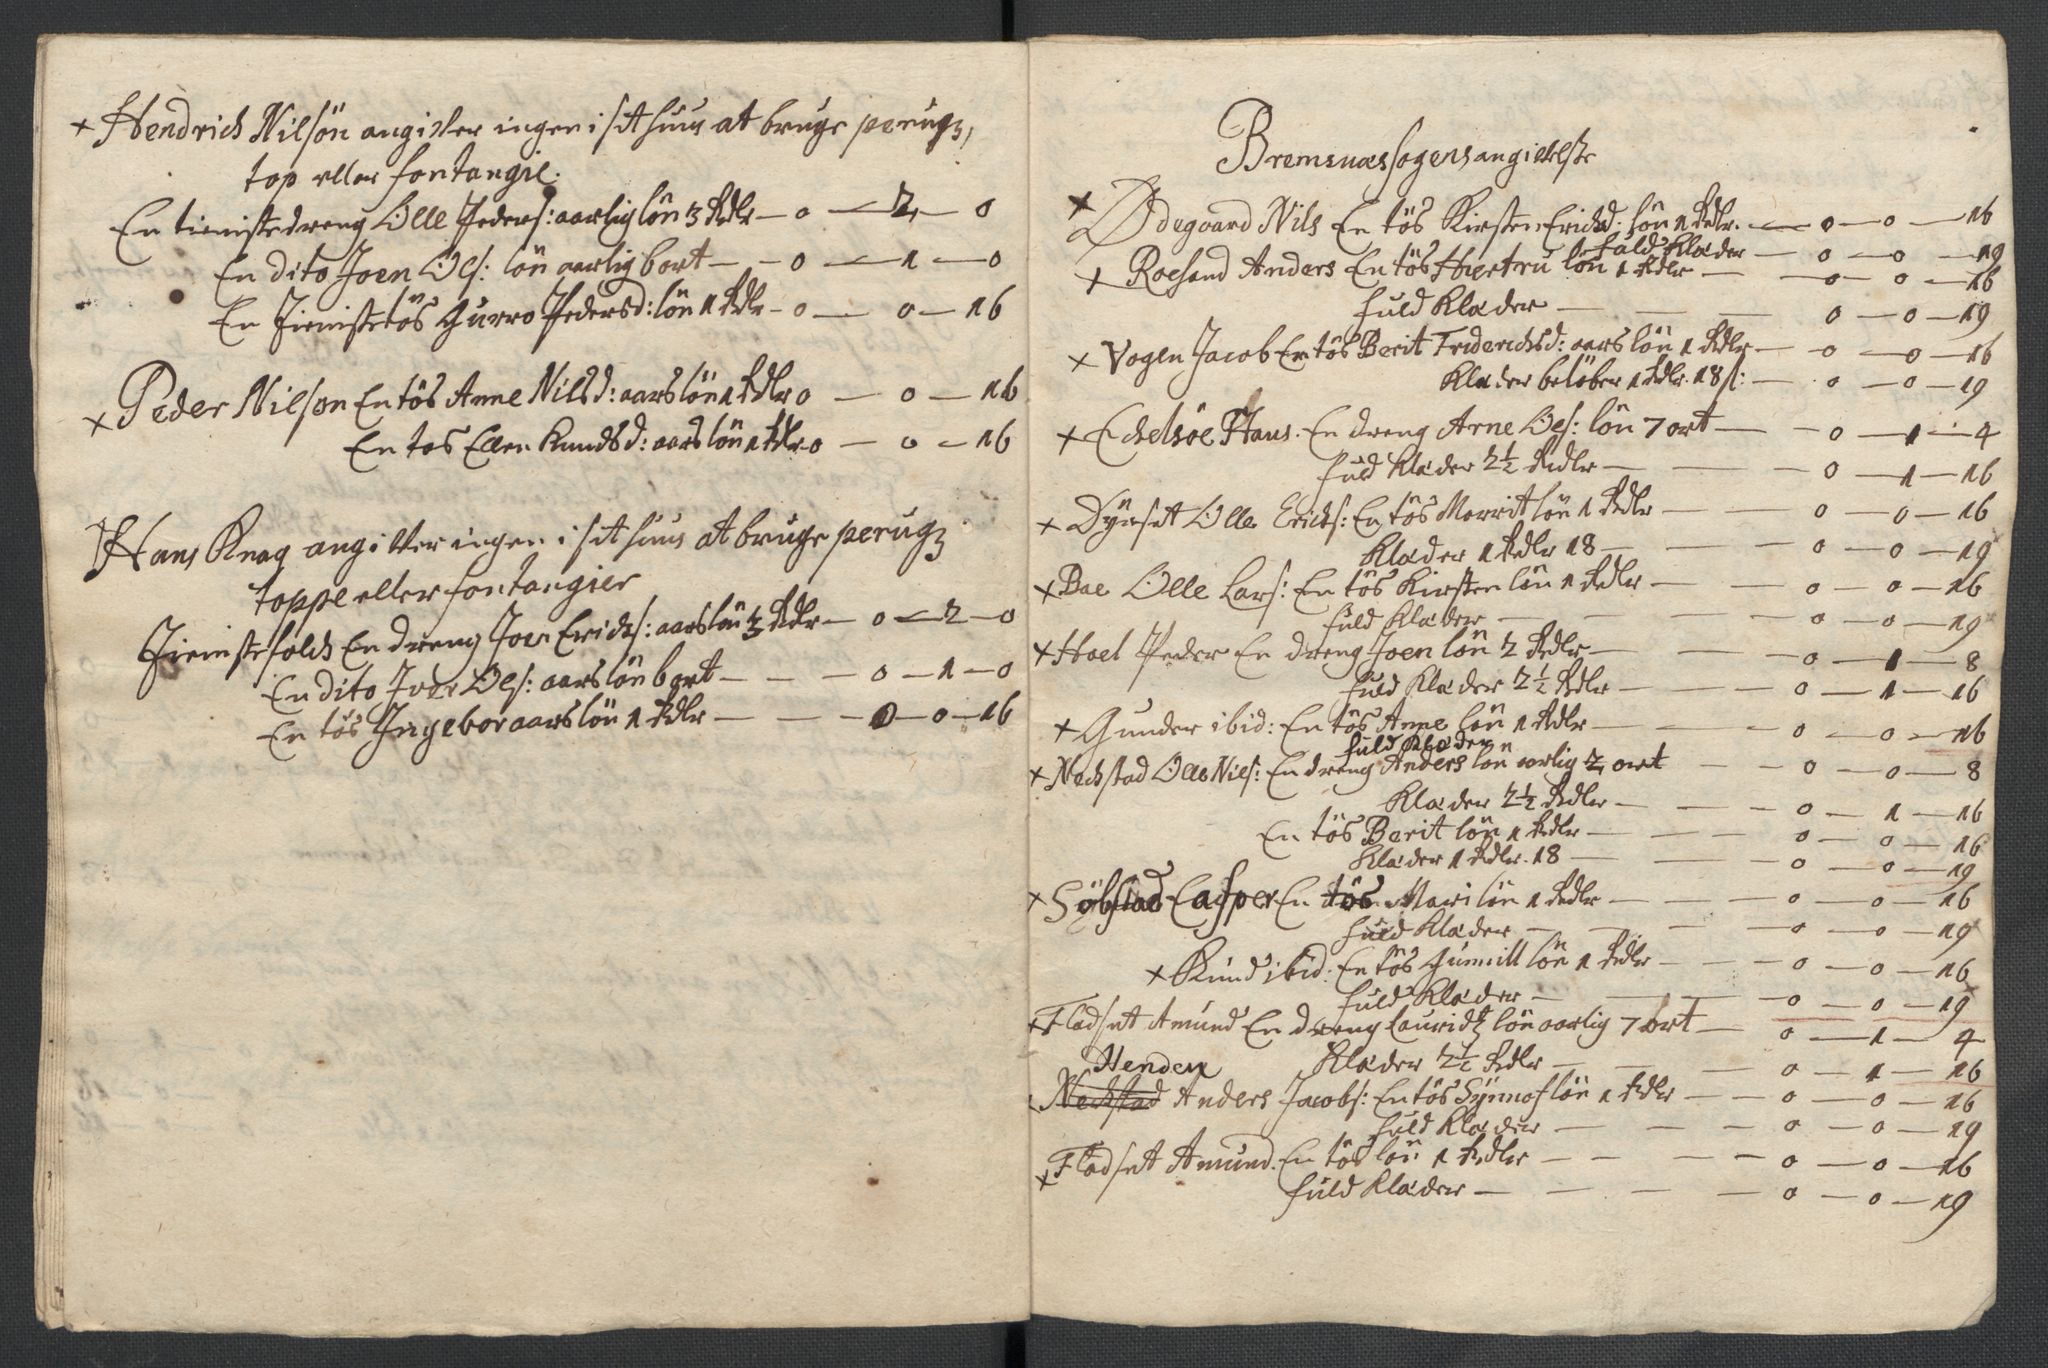 + Hendrich Nilsön angifver ingen i sit huus at bruge perugz,
top eller fontangie.
En tienistedreng Olle Peders: aarlig lön 3 Rdlr — 0 — 2 — 0
En dito Joen Ols: lön aarlig 6 ort — 0 — 1 — 0
En Tienistetös Gurro Pedersd: lön 1 Rdlr — 0 — 0 — 16
+ Peder Nilson En tös Anne Nilsd: aars lön 1 Rdlr 0 — 0 — 16
En tös Ellen Knudsd: aars lön 1 Rdlr 0 — 0 — 16
Hans Knag angifver ingen i sit huus at bruge perugz
toppe eller fontangier
Tienistefolch En dreng Joen Erichs: aars lön 3 Rdlr — 0 — 2 — 0
En dito Iver Ols: aars lön 6 ort — 0 — 1 — 0
En tös Ingebor aars lön 1 Rdlr — 0 — 0 — 16
Bremsnæs sogens angifvelse
+ Ødegaard Nils En tös Kirsten Erichsd: lön 1 Rdlr. — 0 — 0 — 16
fuld Klæder — 0 — 0 — 19
+ Roesand Anders En tös Hiertru lön 1 Rdlr — 0 — 0 — 16
fuld Klæder — 0 — 0 — 19
+ Vogen Jacob En tös Berit Friderichsd: aars lön 1 Rdlr — 0 — 0 — 16
Klæder beløber 1 Rdlr. 18 s: — 0 — 0 — 19
+ Echelsöe Hans. En dreng Arne Ols: lön 7 ort — 0 — 1 — 4
fuld Klæder 2½ Rdlr — 0 — 1 — 16
+ Dÿrset Olle Erichs: En tös Marrit lön 1 Rdlr — 0 — 0 — 16
Klæder 1 Rdlr 18 — 0 — 0 — 19
+ Bae Olle Lars: En tös Kirsten lön 1 Rdlr — 0 — 0 — 16
fuld Klæder — 0 — 0 — 19
+ Hoel Peder En dreng Joen lön 2 Rdlr — 0 — 1 — 8
fuld Klæder 2½ Rdlr — 0 — 1 — 16
+ Gunder ibid: En tös Anne lön 1 Rdlr — 0 — 0 — 16
fuld Klæder
+ Neckstad Olle Nils: En dreng Anders lön aarlig 2 ort — 0 — 0 — 8
Klæder 2½ Rdlr — 0 — 1 — 16
En tös Berit lön 1 Rdlr — 0 — 0 — 16
Klæder 1 Rdlr. 18 — 0 — 0 — 19
+ Söbstad Casper En tös Mari lön 1 Rdlr — 0 — 0 — 16
fuld Klæder — 0 — 0 — 19
+ Knud ibid: En tös Gunnill lön 1 Rdlr — 0 — 0 — 16
fuld Klæder — 0 — 0 — 19
+ Fladset Amund En dreng Lauridz lön aarlig 7 ort — 0 — 1 — 4
Klæder 2½ Rdlr — 0 — 1 — 16
Henden
Neckstad Anders Jacobs: En tös Sÿnnof lön 1 Rdlr — 0 — 0 — 16
fuld Klæder — 0 — 0 — 19
+ Fladset Amund. En tös lön 1 Rdlr — 0 — 0 — 16
fuld Klæder — 0 — 0 — 19